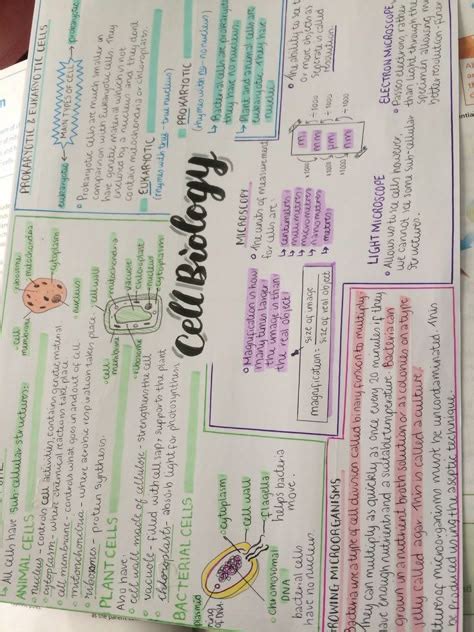 All cells have sub-cellular structures:
ANIMAL CELLS
nucleus - controls cell activities, contains genetic material
cytoplasm - where chemical reactions take place
cell membrane - controls what goes in and out of cell
mitochondria - where aerobic respiration takes place
ribosomes - protein synthesis.
ribosome
mitochondria
cytoplasm
nucleus
cell
membrane
PLANT CELLS
Also have:
cell wall made of cellulose - strengthens the cell
vacuole - filled with cell sap, supports the plant
chloroplasts - absorb light for photosynthesis
cell wall
mitochondria
vacuole
chloroplast
nucleus
cytoplasm
cell
membrane
ribosome
BACTERIAL CELLS
plasmid
DNA
cytoplasm
cell wall
flagella
helps bacteria
move.
chromosomal
DNA
bacterial cells
have no nucleus
PROKARYOTIC & EUKARYOTIC CELLS
eukaryotic
MAIN TYPES OF CELL
prokaryotic
Prokaryotic cells are much smaller in
comparison with Eukaryotic cells. They
have genetic material which is not
enclosed by a nucleus and they dont
contain mitochondria or chloroplasts.
EUKARYOTIC
(rhymes with true - true nucleus)
PROKARYOTIC
(rhymes with no - no nucleus)
Bacterial cells are prokaryotic
they have no nucleus.
Plant and animal cells are
eukaryotic. They have
nuclei
Cell Biology
MICROSCOPY
The units of measurement
for cells are:
centimetres
millimetres
micrometres
nanometres
metres
m
mm
µm
nm
×1000
×1000
×1000
÷1000
÷1000
÷1000
The ability to see
or more objects as
seperate is called
Magnification is how
many times larger
the image is than
the real object
magnification = size of image
size of real object
LIGHT MICROSCOPE
Allows us to see cells however,
we cannot see some sub-cellular
structures.
ELECTRON MICROSCOPE
Passes electrons rather
than light through the
specimen allowing
better resolution
GROWING MICROORGANISMS
Bacteria use a type of cell division called binary fission to multiply
they can multiply as quickly as once every 20 minutes if they
have enough nutrients and a suitable temperature. Bacteria can
grown in a nutrient broth solution or as colonies on a type
jelly called agar. This is called a culture.
cultures of microorganisms must be uncontaminated. This
be produced using the aseptic technique